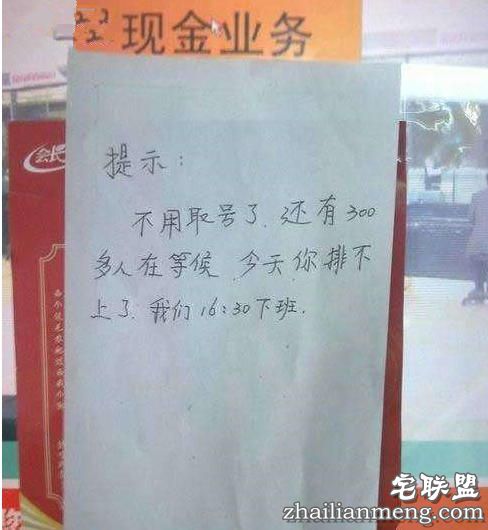 现金业务
提示：
不用取号了.还有300
多人在等候.今天你排不
上了.我们16:30下班.
宅联盟
zhailianmeng.com